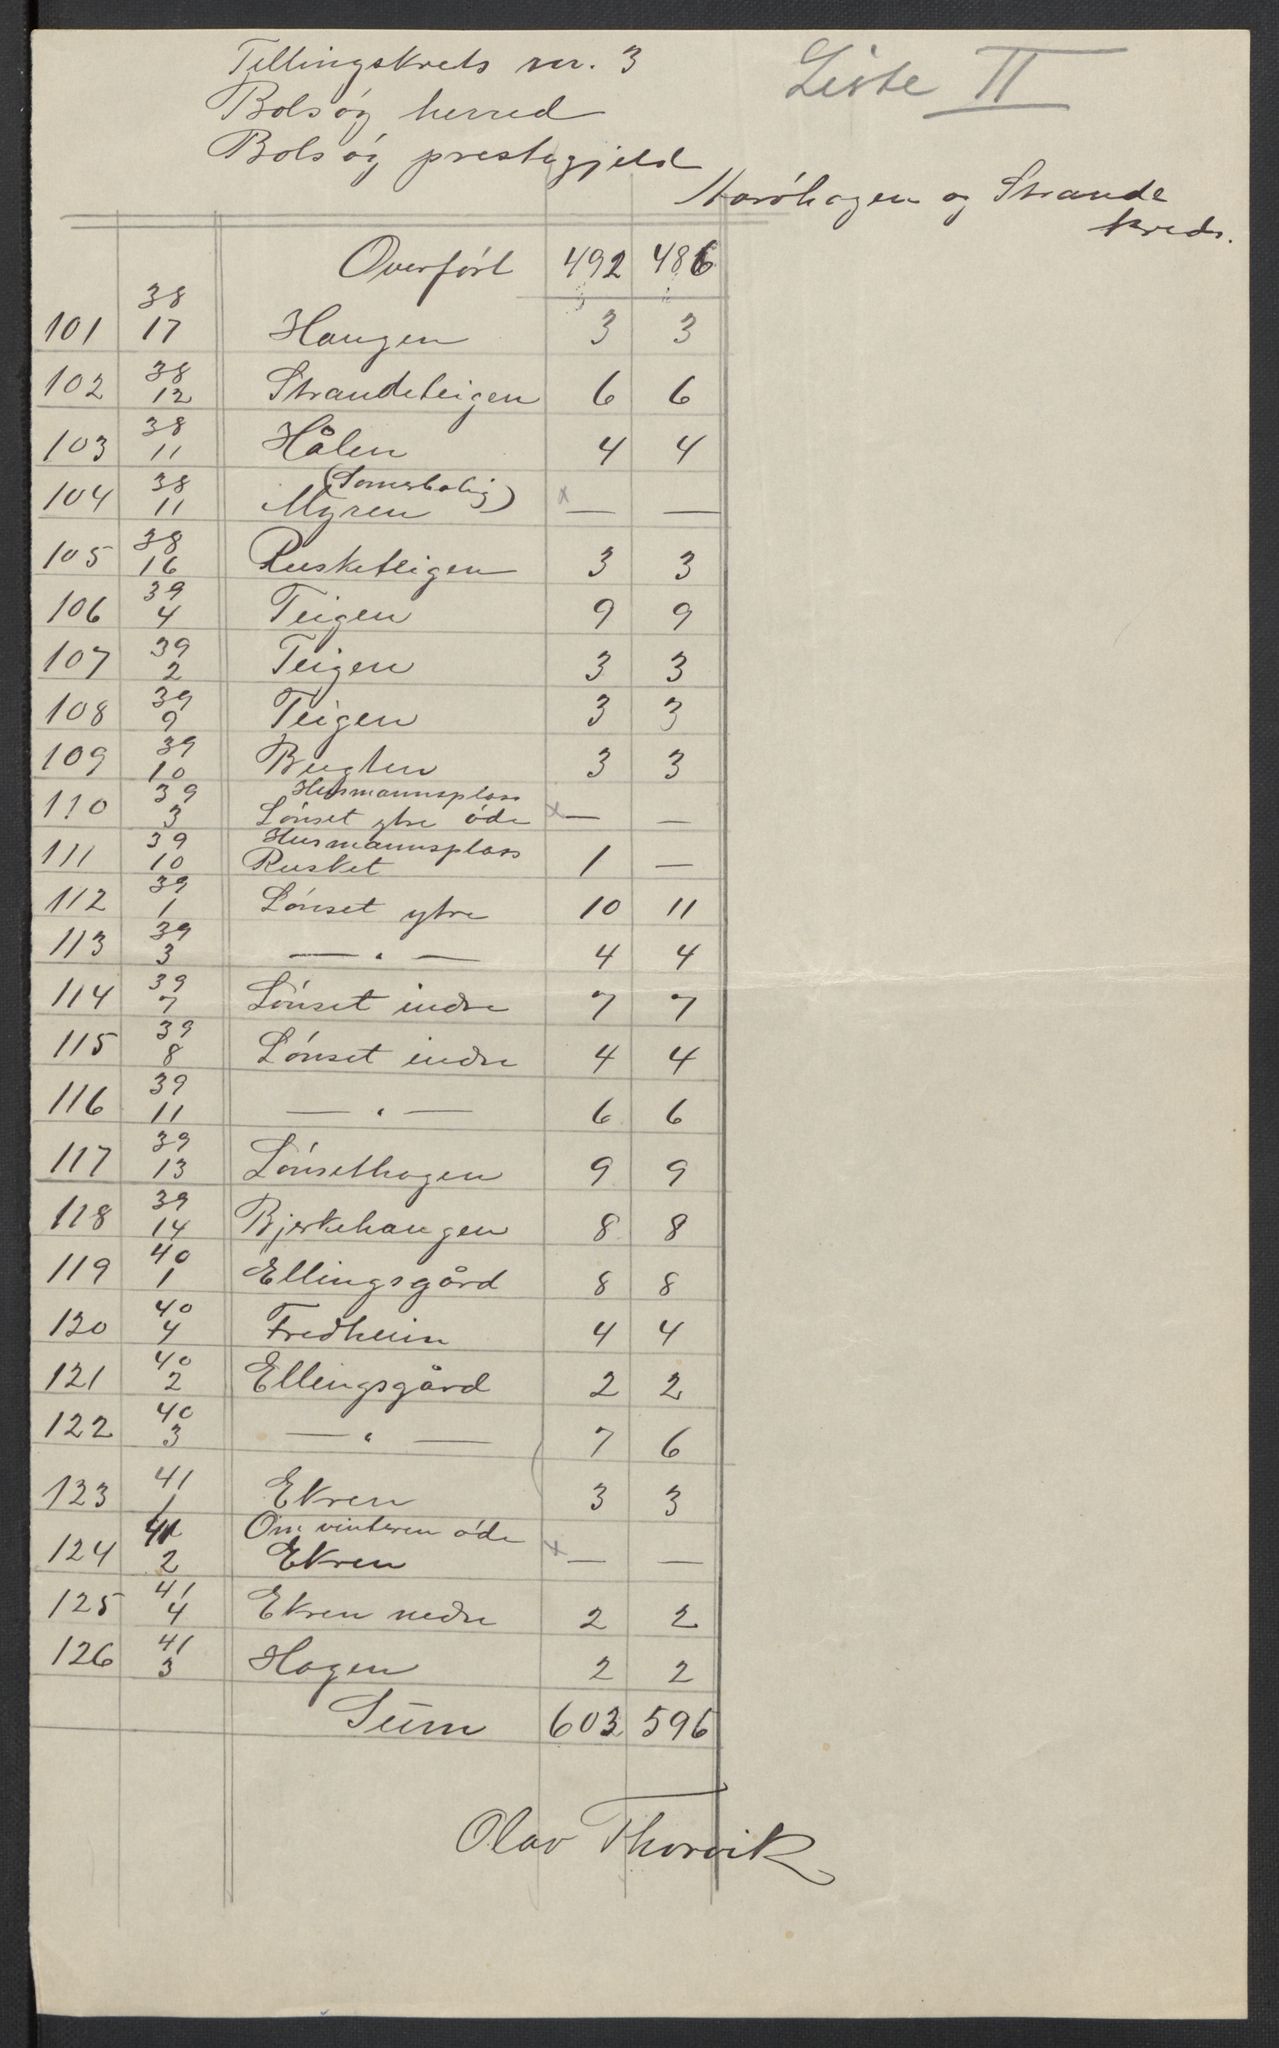 Tellingskrets nr. 3
Liste II
Bolsøy herred
Bolsøy prestegjeld
og Strande
kreds.
Overført 492 486
101 38 17 Haugen 3 3
102 38 12 Strandeteigen 6 6
103 38 11 Hålen 4 4
104 38 11 (Somerbolig) Myren x — —
105 38 16 Rusketeigen 3 3
106 39 4 Teigen 9 9
107 39 2 Teigen 3 3
108 39 9 Teigen 3 3
109 39 10 Bugten 3 3
110 39 3 Husmannsplass
Lønset ytre øde x — —
111 39 10 Husmannsplass
Rusket 1 —
112 39 1 Lønset ytre 10 11
113 39 3 — " — 4 4
114 39 7 Lønset indre 7 7
115 39 8 Lønset indre 4 4
116 39 11 — " — 6 6
117 39 13 Lønsethagen 9 9
118 39 14 Bjerkehaugen 8 8
119 40 1 Ellingsgård 8 8
120 40 4 Fredheim 4 4
121 40 2 Ellingsgård 2 2
122 40 3 — " — 7 6
123 41 1 Ekren 3 3
124 41 2 Om vinteren øde
Ekren x — —
125 41 4 Ekren nedre 2 2
126 41 3 Hagen 2 2
Sum 603 596
Olav Thorvik